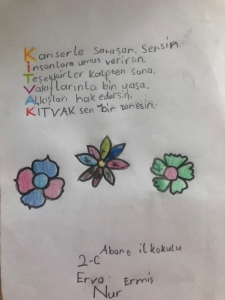 Kanserle savaşan, Sensin.
İnsanlara umut verirsin.
Teşekkürler kalpten sana.
Vakıflarınla bin yaşa.
Alkışları hak edersin.
KİTVAK sen bir tanesin.
Abana ilkokulu
2-C
Erva Ermiş
Nur